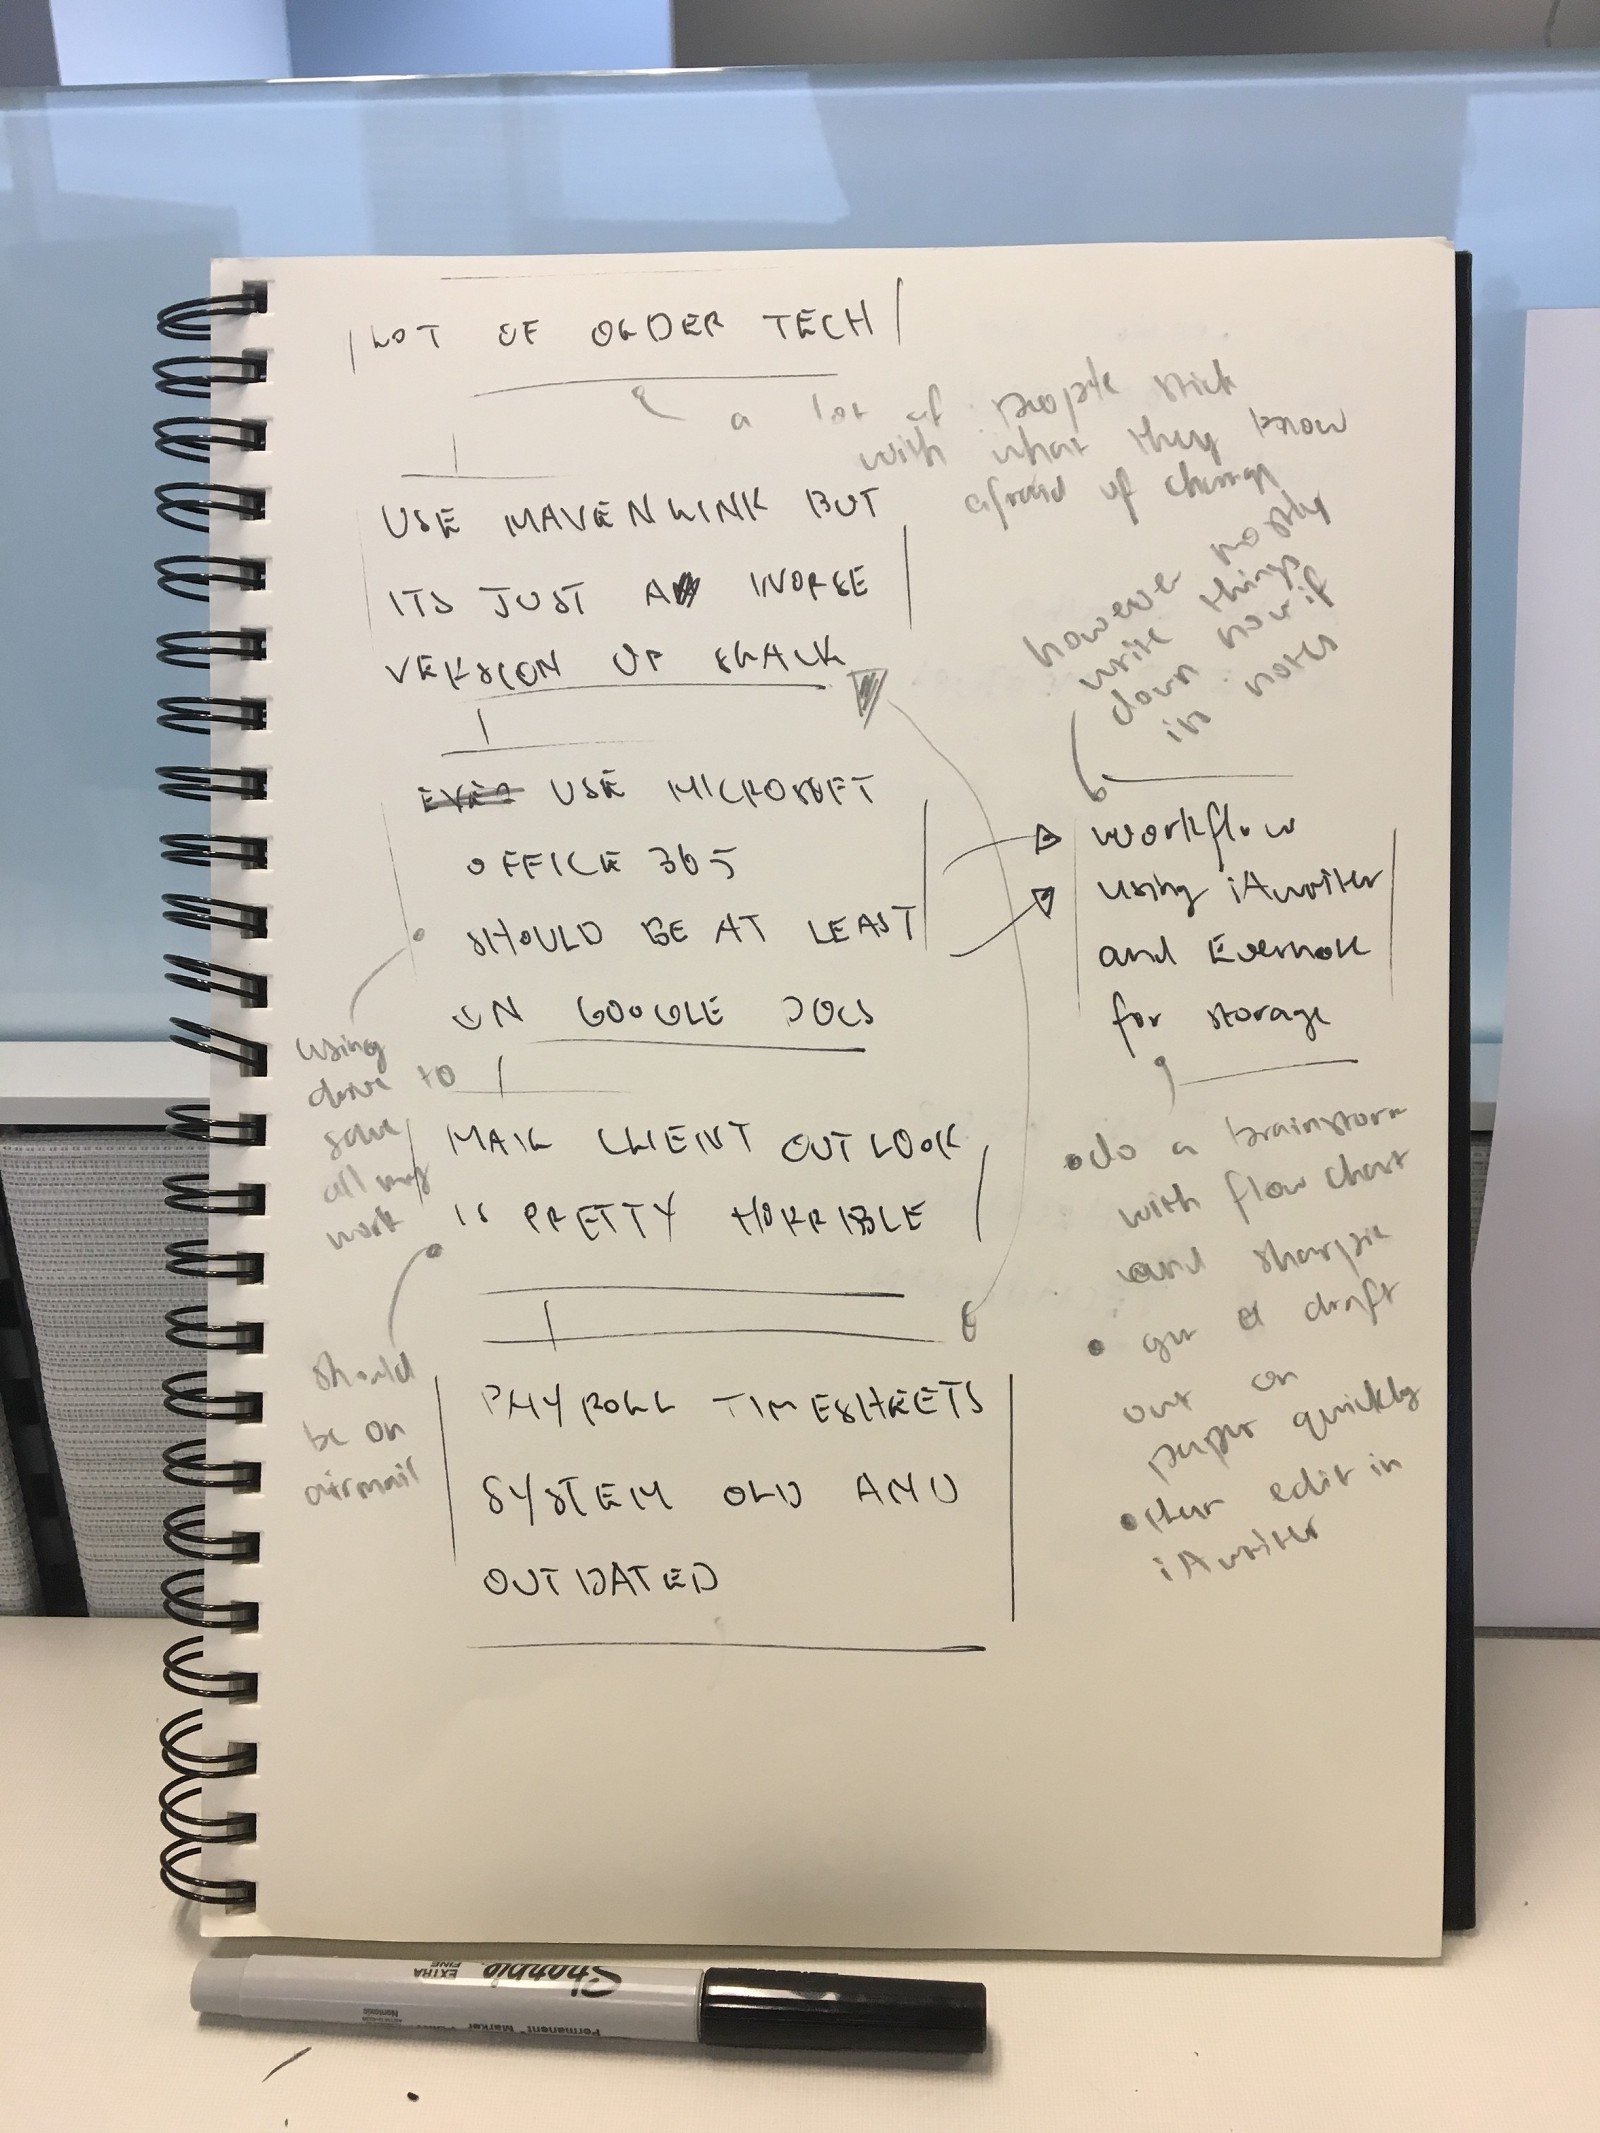 LOT OF OLDER TECH
a lot of people stick
with what they know
afraid of change
USE MAVENLINK BUT
ITS JUST A WORSE
VERSION OF SLACK
however mostly
write things
down now if
in notes
EVEN USE MICROSOFT
OFFICE 365
SHOULD BE AT LEAST
ON GOOGLE DOCS
workflow
using iAwriter
and Evernote
for storage
using
drive to
save
all my
work
MAIL CLIENT OUTLOOK
IS PRETTY HORRIBLE
• do a brainstorm
with flow chart
and sharpie
• get a draft
out on
paper quickly
• then edit in
iAwriter
should
be on
airmail
PAYROLL TIMESHEETS
SYSTEM OLD AND
OUTDATED
Sharpie
EXTRA
FINE
Permanent Marker
Nontoxic